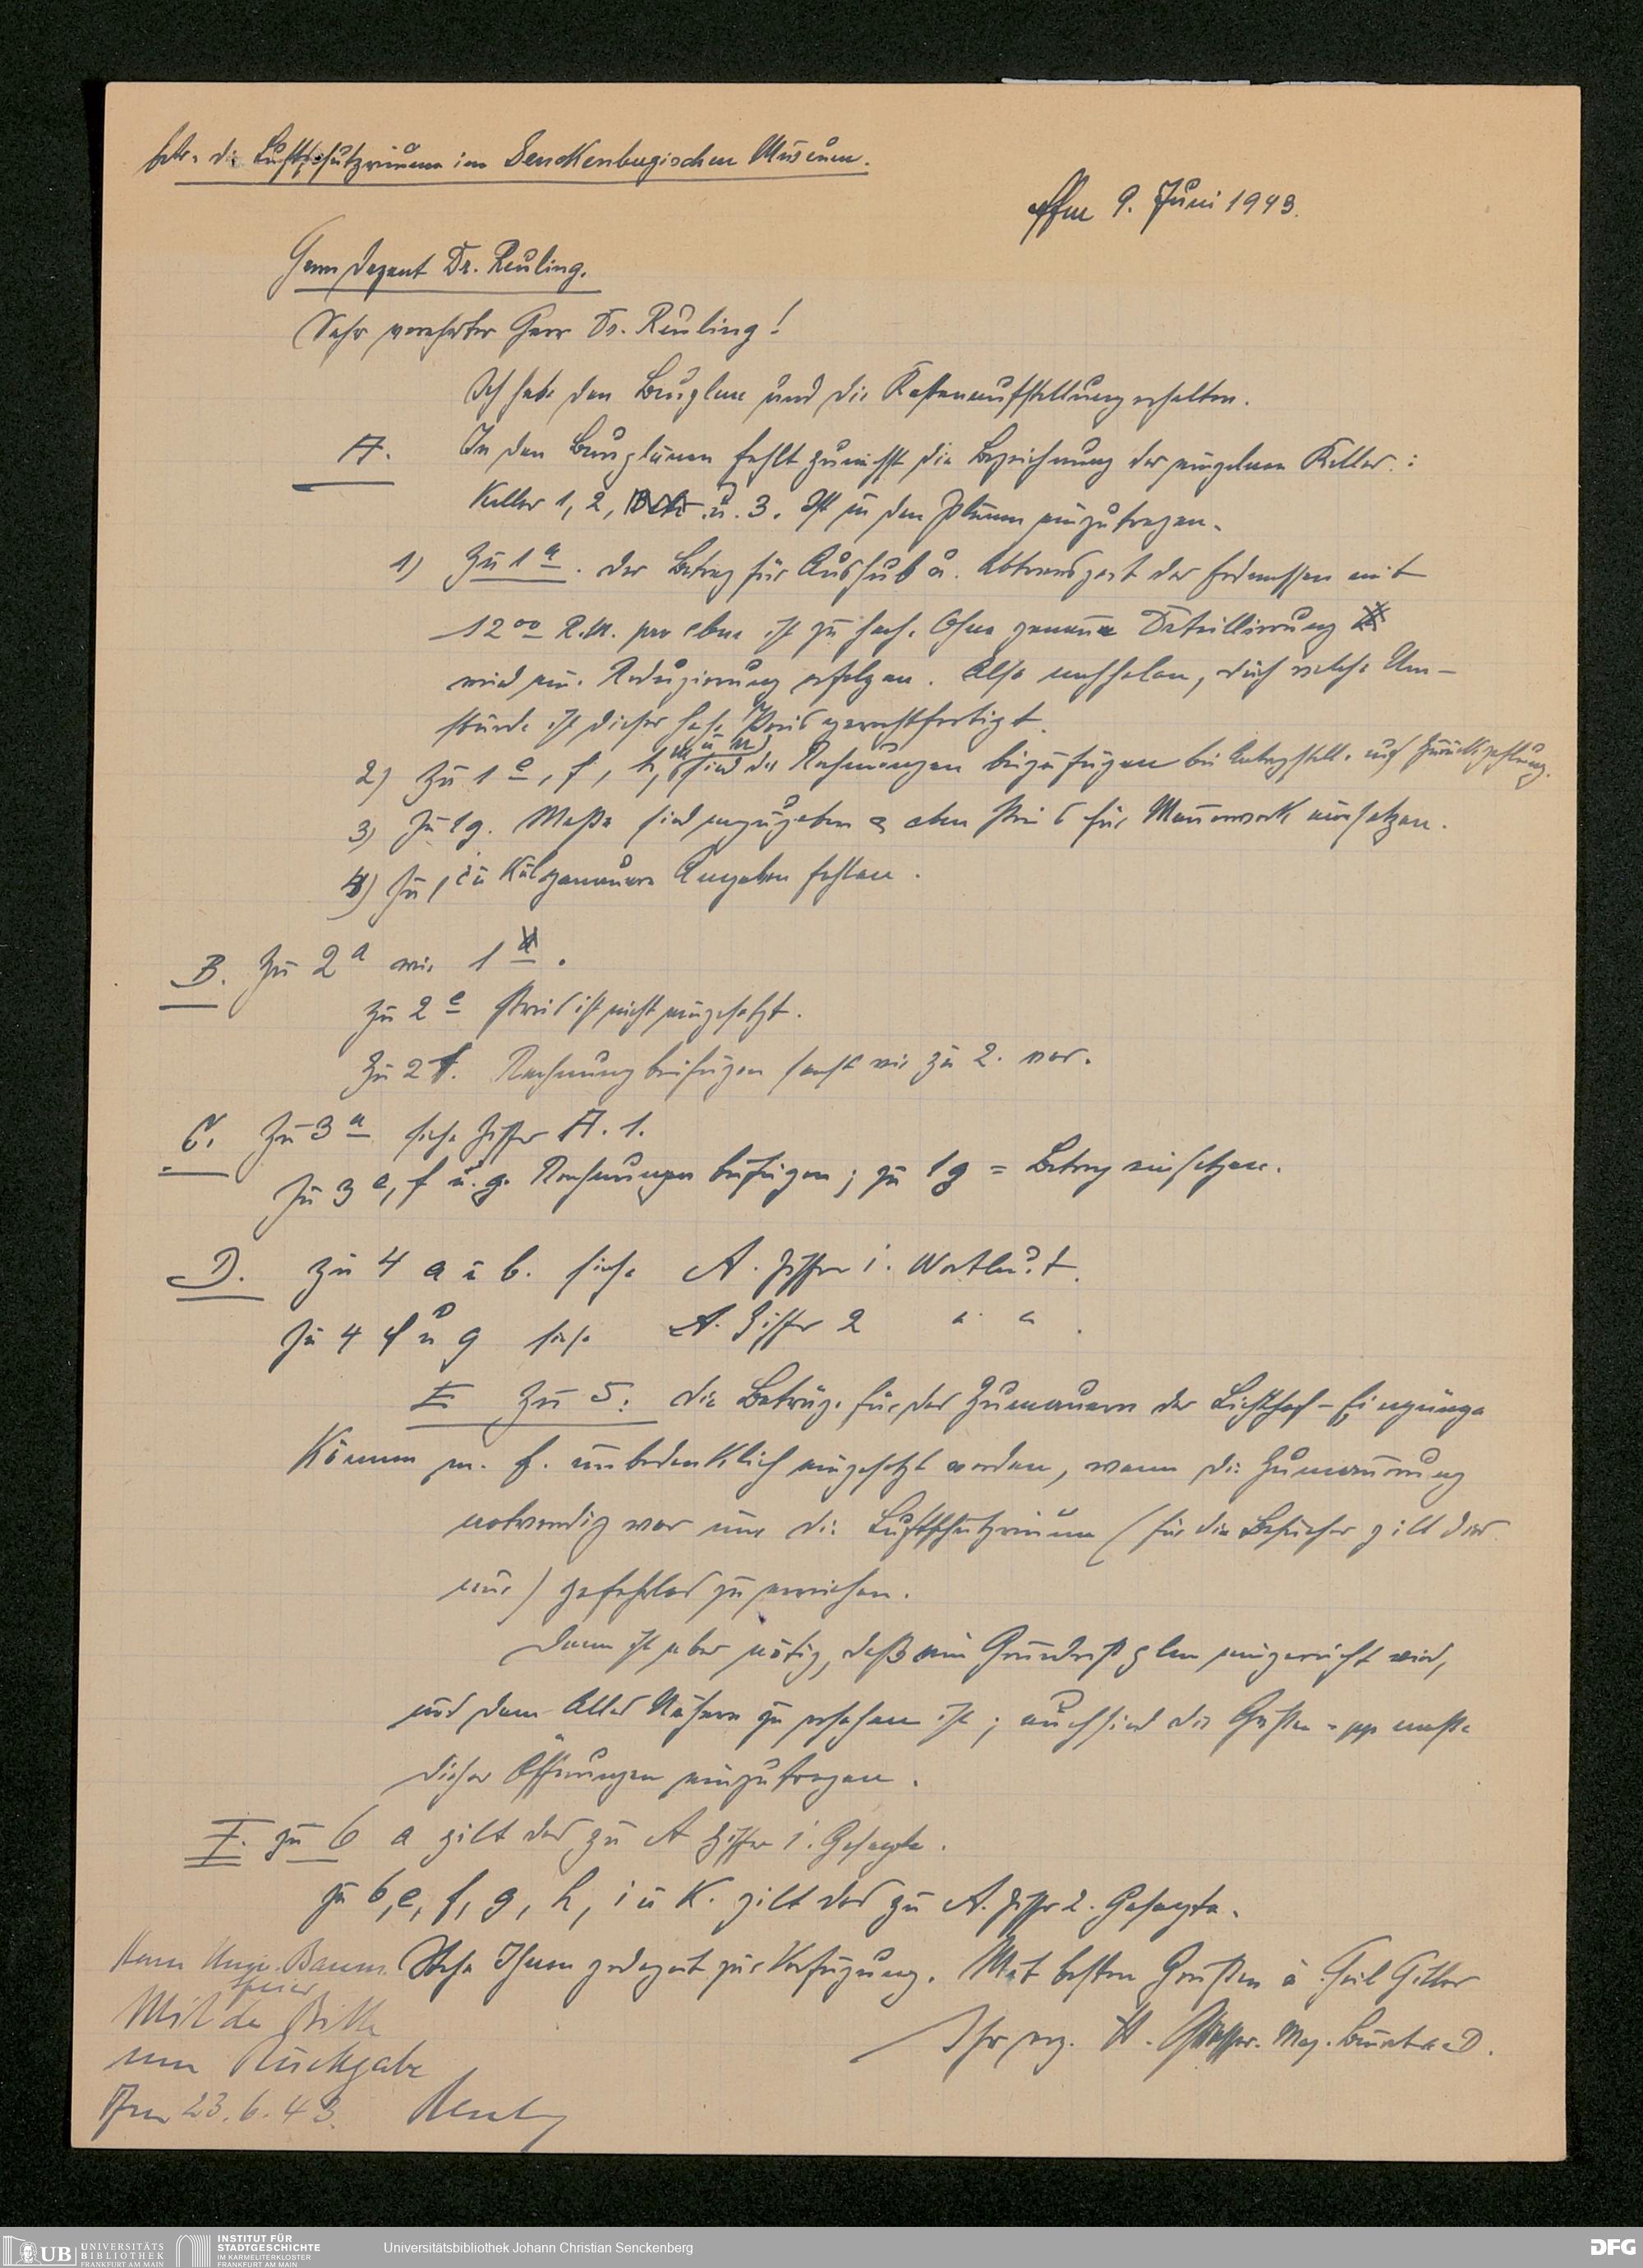 betr. die Luftschutzräume im Senckenbergischen Museum.
Ffm 9. Juni 1943.
Herrn Dezent Dr. Reuling.
Sehr verehrter Herr Dr. Reuling!
Ich habe den Bauplan und die Kostenaufstellung erhalten.
A. In den Bauplänen fehlt zunächst die Bezeichnung der einzelnen Keller:
Keller 1, 2, u. 3. Ist in den Plänen einzutragen.
1) Zu 1 a. Der Betrag für Aushub u. Abtransport der Erdmassen mit
12 00 R.M. pro cbm ist zu hoch. Ohne genaue Detaillierung
wird eine Reduzierung erfolgen. Also nachholen, durch welche Um-
stände ist dieser hohe Preis gerechtfertigt.
2) Zu 1 e, f, h, m u n sind die Rechnungen beizufügen bei Antragstell. auf Zurückzahlung.
3) Zu 1g. Maße sind anzugeben & cbm Preis für Mauerwerk einsetzen.
4) Zu 1 i u k genauere Angaben fehlen.
B. Zu 2 a wie 1 a.
Zu 2 e Preis ist nicht eingesetzt.
Zu 2 f. Rechnung beifügen sonst wie zu 2. vor.
C. Zu 3 a siehe Ziffer A. 1.
Zu 3 e, f u. g. Rechnungen beifügen; zu 1g = Betrag einsetzen.
D. Zu 4 a u b. siehe A. Ziffer 1. Wortlaut.
Zu 4 f u g siehe A. Ziffer 2 " " .
E Zu 5: Die Beträge für das Zumauern der Lichthof-Eingänge
können m. E. unbedenklich eingesetzt werden, wenn die Zumauerung
notwendig war um die Luftschutzräume (für die Besucher gilt das
nur) gefahrlos zu erreichen.
Dann ist aber nötig, daß ein Grundrißplan eingereicht wird,
aus dem Alles Nähere zu ersehen ist; auch sind die Größen - pp maße
dieser Öffnungen einzutragen.
F. zu 6 a gilt das zu A Ziffer 1. Gesagte.
zu 6, e, f, g, h, i u k. gilt das zu A. Ziffer 2. Gesagte.
Stehe Ihnen jederzeit zur Verfügung. Mit besten Grüßen u Heil Hitler
Ihr erg. H. Mag. Baurat a D.
Herrn Baum
Mit der Bitte
um Rückgabe
Ffm 23.6.43. Reuling
UB UNIVERSITÄTS
BIBLIOTHEK
FRANKFURT AM MAIN
INSTITUT FÜR
STADTGESCHICHTE
IM KARMELITERKLOSTER
FRANKFURT AM MAIN
Universitätsbibliothek Johann Christian Senckenberg
DFG